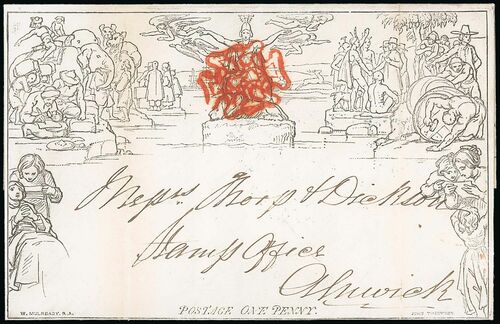 Messrs Thorp & Dickson
Stamp Office
Alnwick
POSTAGE ONE PENNY.
W. MULREADY. R.A.
JOHN THOMPSON